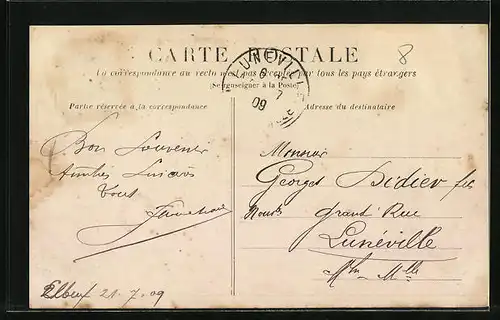 8
CARTE POSTALE
La correspondance au recto n'est pas acceptée par tous les pays étrangers
(Se renseigner à la Poste)
LUNEVILLE
7
09
Partie réservée à la correspondance
Adresse du destinataire
Bon Souvenir
Amitiés
Tous
Monsieur
Georges Didier fils
grand Rue
Lunéville
Mthe - Mlle
Elbeuf 21.7.09